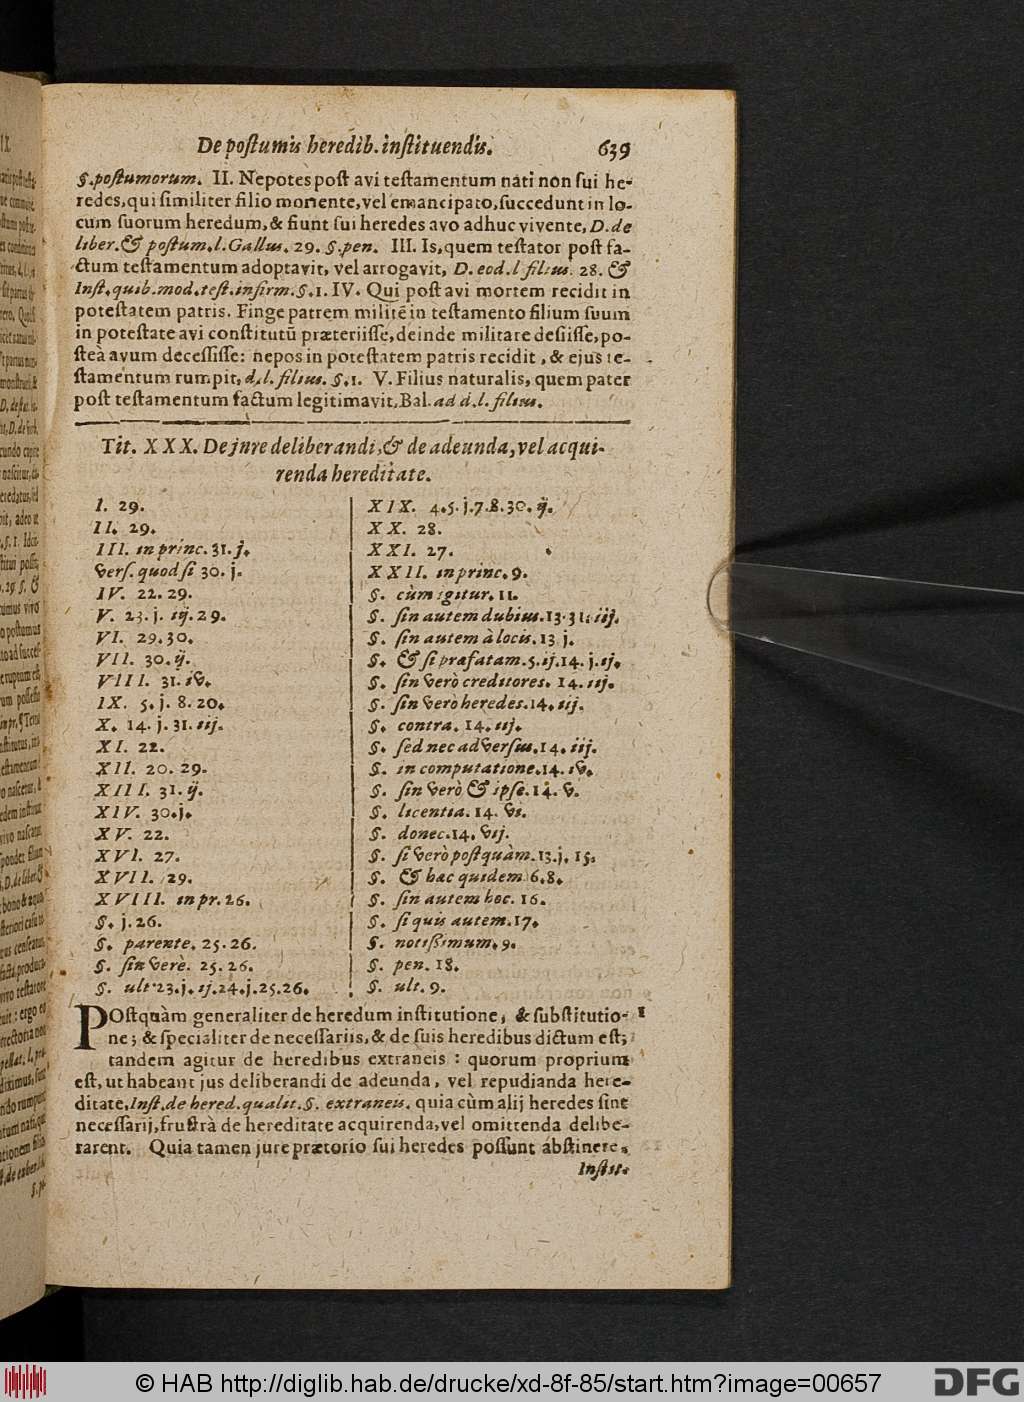 De postumis heredib. instituendis. 639
§. postumorum. II. Nepotes post avi testamentum nati non sui he-
redes, qui similiter filio moriente, vel emancipato, succedunt in lo-
cum suorum heredum, & fiunt sui heredes avo adhuc vivente, D. de
liber. & postum. l. Gallus. 29. §. pen. III. Is, quem testator post fa-
ctum testamentum adoptavit, vel arrogavit, D. eod. l filius. 28. &
Inst. quib. mod. test. infirm. §. 1. IV. Qui post avi mortem recidit in
potestatem patris. Finge patrem militē in testamento filium suum
in potestate avi constitutū præteriisse, deinde militare desiisse, po-
steà avum decessisse: nepos in potestatem patris recidit, & ejus te-
stamentum rumpit, d. l. filius. §. 1. V. Filius naturalis, quem pater
post testamentum factum legitimavit, Bal. ad d. l. filius.
Tit. XXX. De jure deliberandi, & de adeunda, vel acqui-
renda hereditate.
I. 29.
II. 29.
III. in princ. 31. j.
vers. quod si 30. j.
IV. 22. 29.
V. 23. j. iij. 29.
VI. 29. 30.
VII. 30. ij.
VIII. 31. iv.
IX. 5. j. 8. 20.
X. 14. j. 31. iij.
XI. 22.
XII. 20. 29.
XIII. 31. ij.
XIV. 30. j.
XV. 22.
XVI. 27.
XVII. 29.
XVIII. in pr. 26.
§. j. 26.
§. parente. 25. 26.
§. sin verè. 25. 26.
§. ult. 23. j. ij. 24. j. 25. 26.
XIX. 4. 5. j. 7. 8. 30. ij.
XX. 28.
XXI. 27.
XXII. in princ. 9.
§. cùm igitur. 11.
§. sin autem dubius. 13. 31. iij.
§. sin autem à locis. 13 j.
§. & si præfatam. 5. ij. 14. j. ij.
§. sin verò creditores. 14. iij.
§. sin verò heredes. 14. iij.
§. contra. 14. iij.
§. sed nec adversus. 14. iij.
§. in computatione. 14. iv.
§. sin verò & ipse. 14. v.
§. licentia. 14. vi.
§. donec. 14. vij.
§. si verò postquàm. 13. j. 15.
§. & hac quidem 6. 8.
§. sin autem hoc. 16.
§. si quis autem. 17.
§. notissimum. 9.
§. pen. 18.
§. ult. 9.
POstquàm generaliter de heredum institutione, & substitutio- 1
ne; & specialiter de necessariis, & de suis heredibus dictum est;
tandem agitur de heredibus extraneis: quorum proprium
est, ut habeant jus deliberandi de adeunda, vel repudianda here-
ditate, Inst. de hered. qualit. §. extraneis. quia cùm alij heredes sint
necessarij, frustrà de hereditate acquirenda, vel omittenda delibe-
rarent. Quia tamen jure prætorio sui heredes possunt abstinere,
Instit.
© HAB http://diglib.hab.de/drucke/xd-8f-85/start.htm?image=00657
DFG